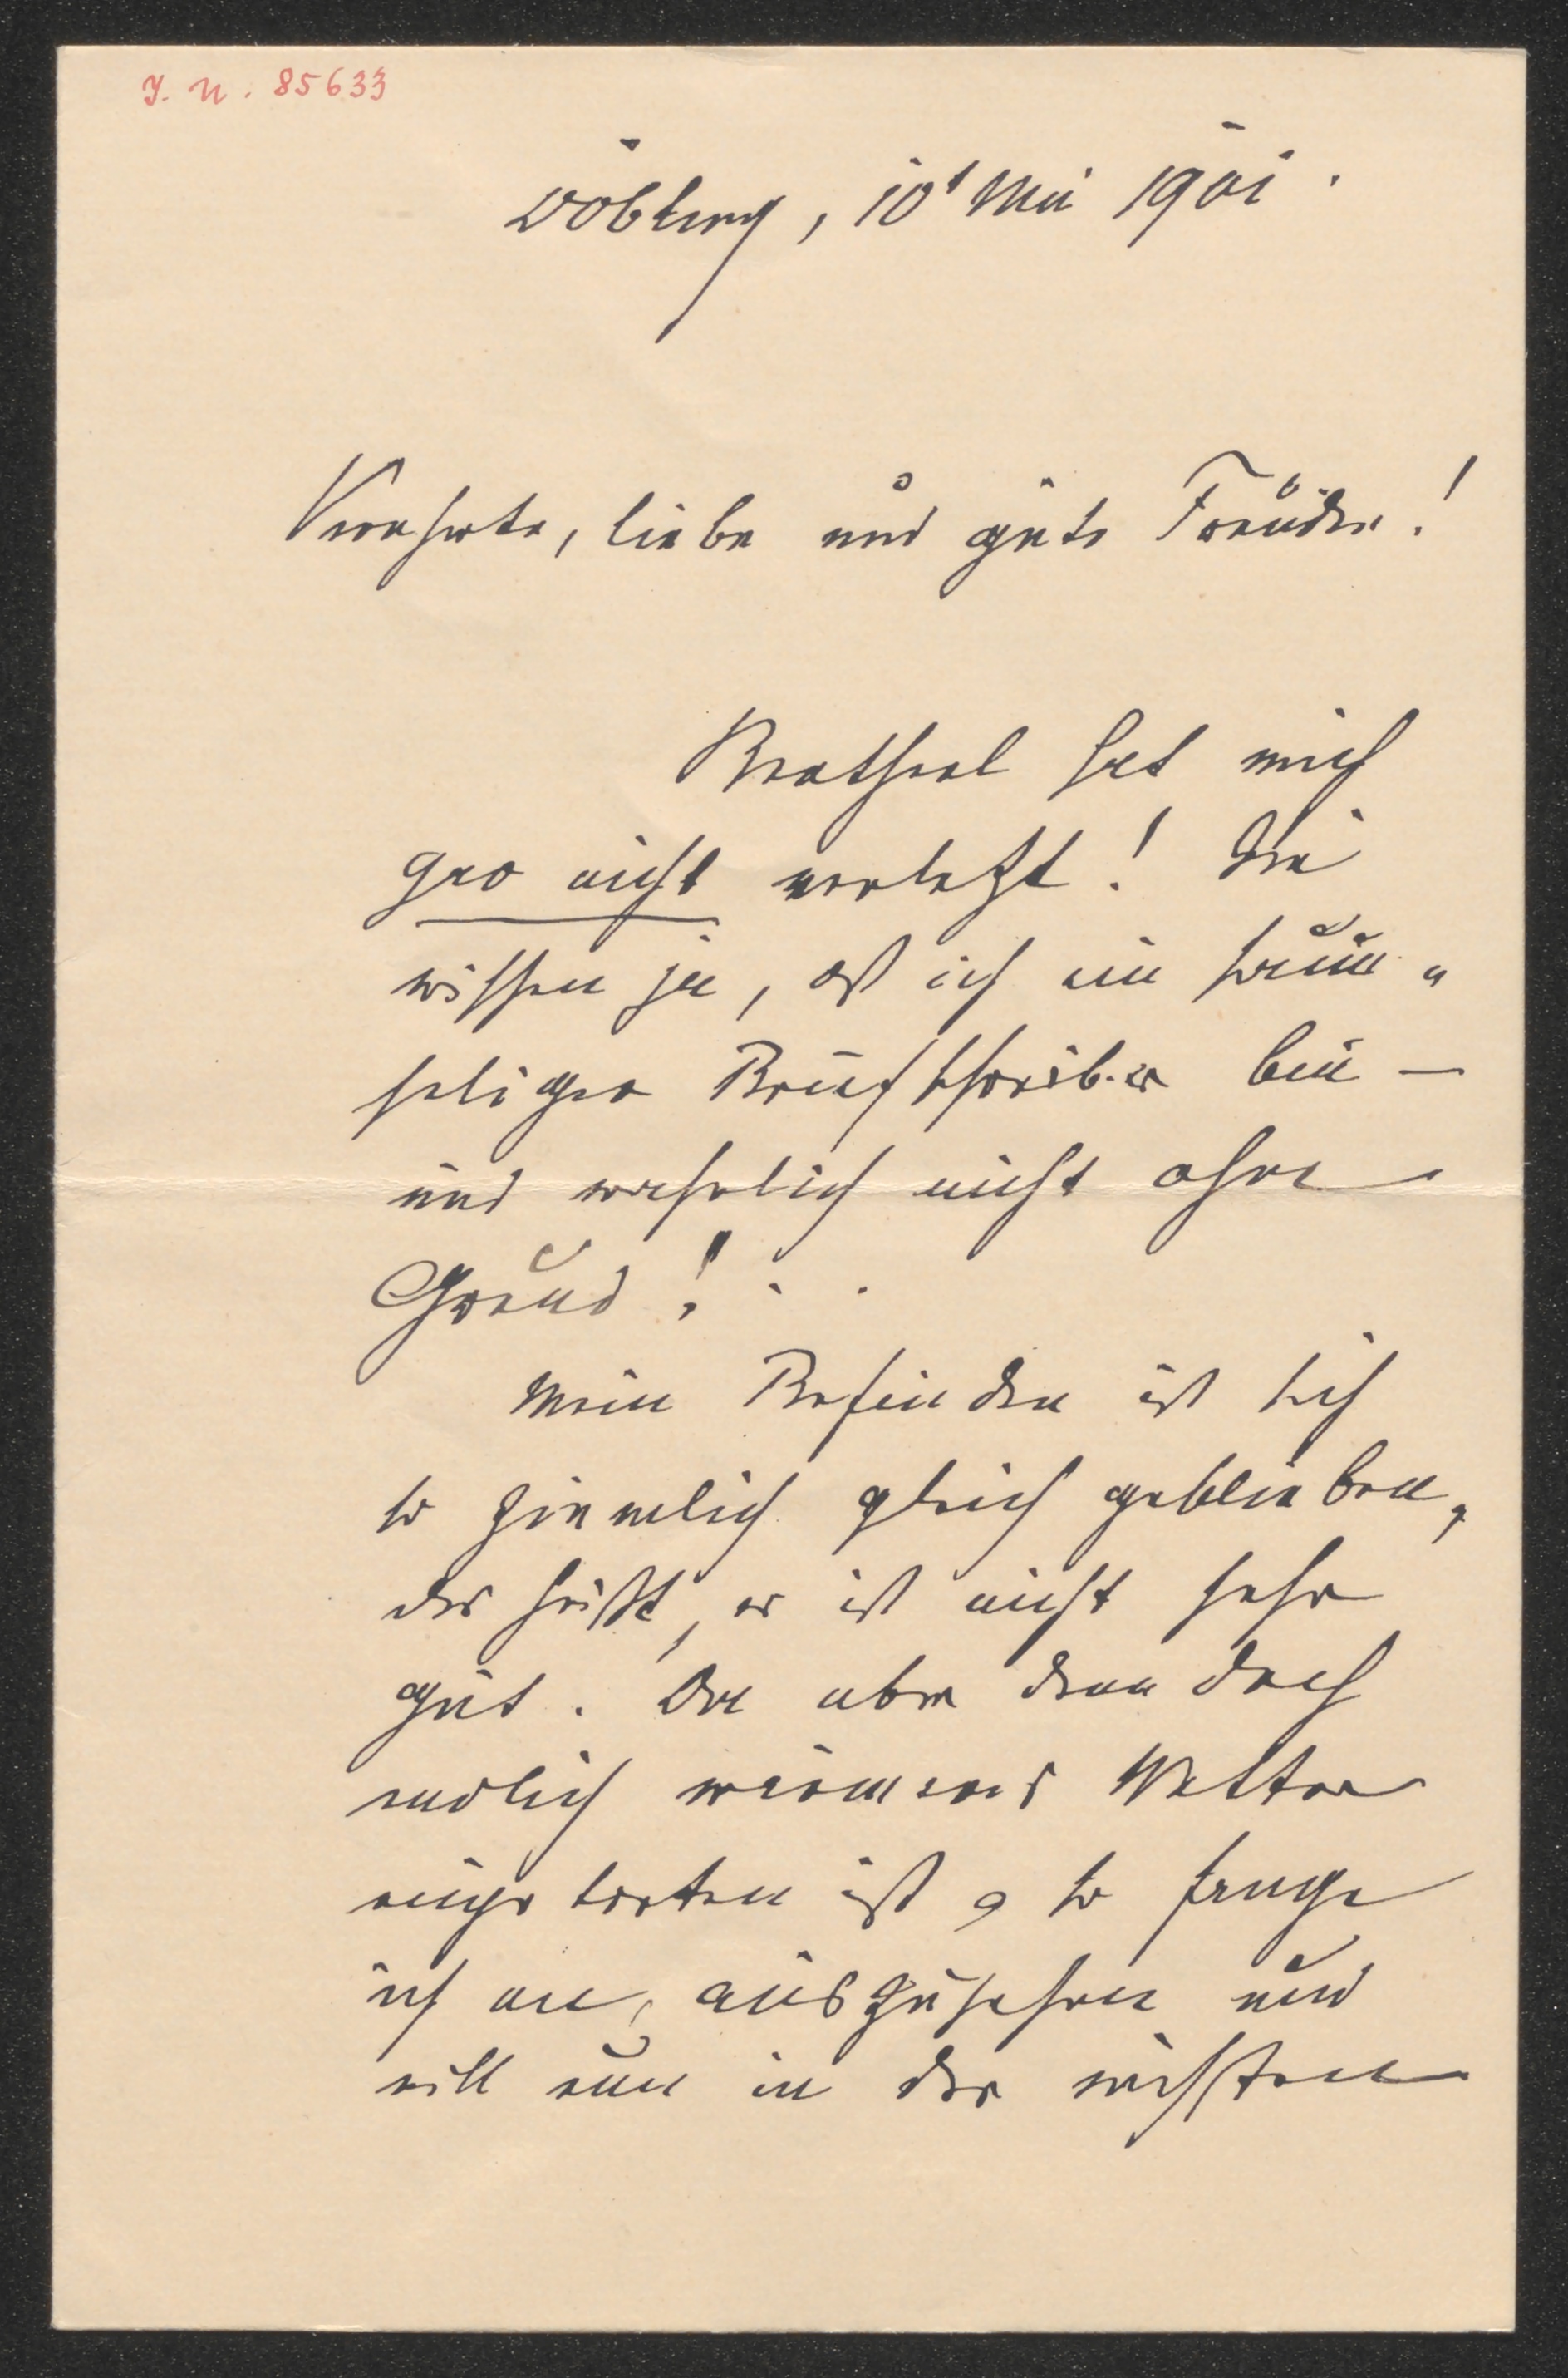 J. N. 85633
Döbling, 10t Mai 1901.
Verehrte, liebe und gute Freundin!
hat mich
gar nicht verletzt! Sie
wissen ja, daß ich ein saum-
seliger Briefschreiber bin —
und wahrlich nicht ohne
Grund! . .
Mein Befinden ist sich
so ziemlich gleich geblieben,
das heißt, es ist nicht sehr
gut. Da aber denn doch
endlich wärmeres Wetter
eingetreten ist, so fange
ich an, auszugehen und
will nun in der nächsten